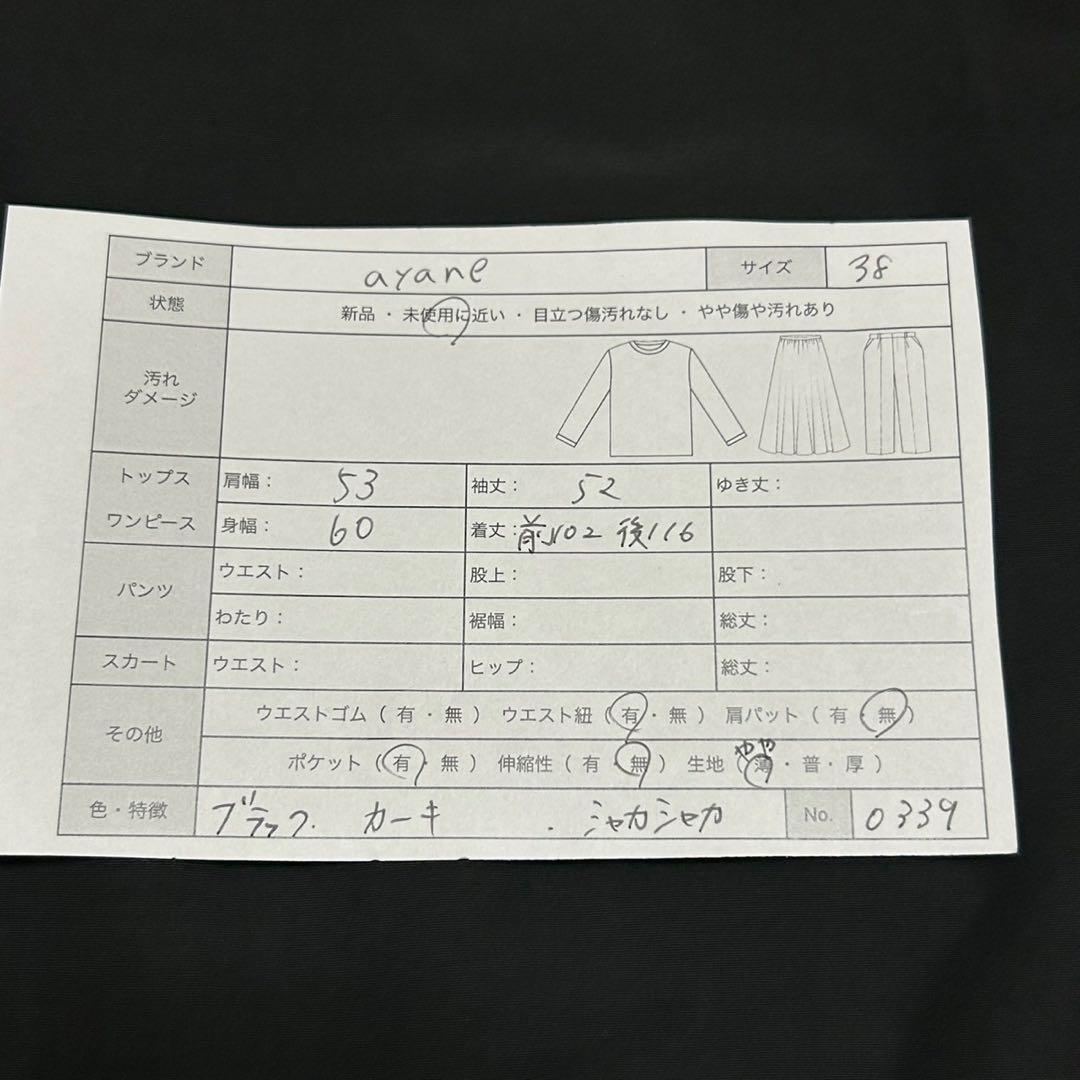 ブランド ayane サイズ 38
状態 新品・未使用に近い・目立つ傷汚れなし・やや傷や汚れあり
汚れ
ダメージ
トップス 肩幅： 53 袖丈： 52 ゆき丈：
ワンピース 身幅： 60 着丈： 前102 後116
パンツ ウエスト： 股上： 股下：
わたり： 裾幅： 総丈：
スカート ウエスト： ヒップ： 総丈：
その他 ウエストゴム（有・無） ウエスト紐（有・無） 肩パット（有・無）
やや
ポケット（有・無） 伸縮性（有・無） 生地（薄・普・厚）
色・特徴 ブラック. カーキ . シャカシャカ No. 0339